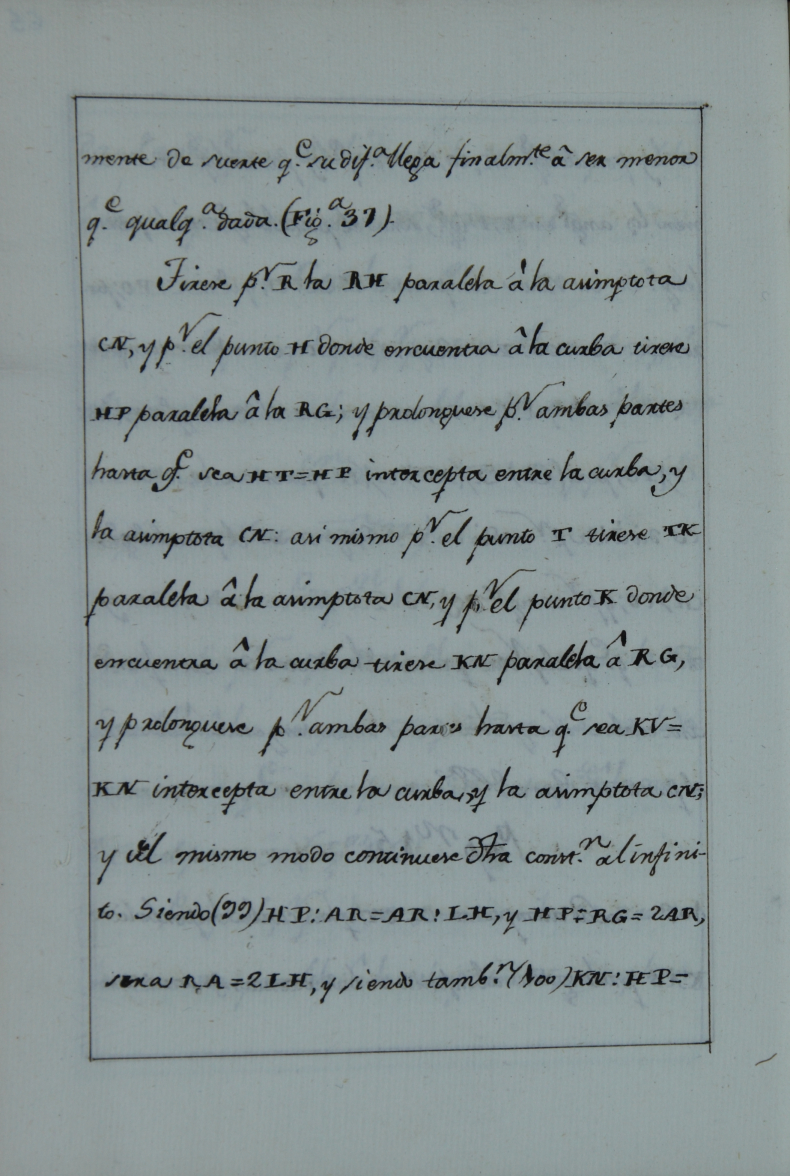 mente de suerte q.e su dif.a llega finalm.te â ser menor
q.e qualq.a dada. (Fig.a 37).
Tirese p.r R la RH paralela â la asimptota
CN, y p.r el punto H donde encuentra â la curba tirese
HP paralela â la RG; y prolonguese p.r ambas partes
hasta q.e sea HT=HP intercepta entre la curba, y
la asimptota CN: asi mismo p.r el punto T tirese TK
paralela â la asimptota CN, y p.r el punto K donde
encuentra â la curba tirese KN paralela â RG,
y prolonguese p.r ambas partes hasta q.e sea KV=
KN intercepta entre la curba, y la asimptota CN;
y del mismo modo continuese dha const.n al infini-
to. Siendo (99) HP:AR=AR:LH, y HP=RG=2AR,
sera RA=2LH, y siendo tamb.n (100) KN:HP=